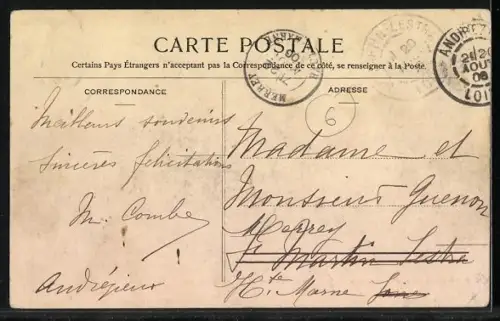 CARTE POSTALE
Certains Pays Étrangers n'acceptent pas la Correspondance de ce côté, se renseigner à la Poste.
CORRESPONDANCE
ADRESSE
Meilleurs souvenirs
Sincères félicitations
M. Combe
Andrézieux
6
Madame et
Monsieur Guenon
Merrey
St Martin Lestra
Hte Marne Loire
MERREY
AOUT